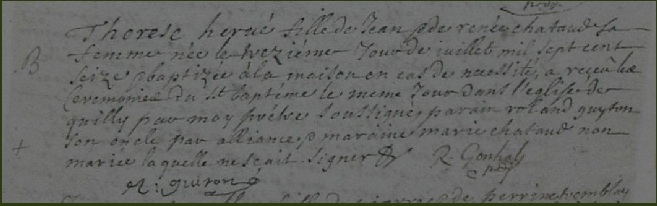 B
Therese hervé fille de Jean & de renée chataud sa
femme née le trezième Jour de juillet mil sept cent
seize & baptizee a la maison en cas de necessité, a reçeu les
Ceremonies du St baptême le meme Jour dans l'eglise de
quilly par moy prêtre soussigné, parain rolland guyton
son oncle par alliance, & maraine marie chataud non
mariée laquelle ne sçait signer & R. Gonhaly
R: guiton
fille de de perrine tremblay